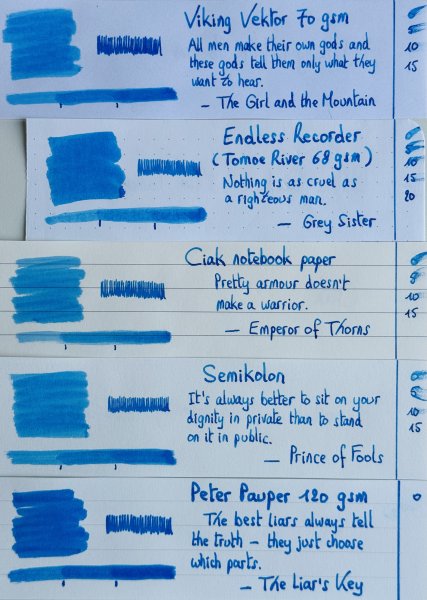 Viking Vektor 70 gsm
All men make their own gods and
these gods tell them only what they
want to hear.
– The Girl and the Mountain
10
15
Endless Recorder
(Tomoe River 68 gsm)
Nothing is as cruel as
a righteous man.
– Grey Sister
10
15
20
Ciak notebook paper
Pretty armour doesn't
make a warrior.
– Emperor of Thorns
10
15
Semikolon
It's always better to sit on your
dignity in private than to stand
on it in public.
– Prince of Fools
10
15
Peter Pauper 120 gsm
The best liars always tell
the truth – they just choose
which parts.
– The Liar's Key
0